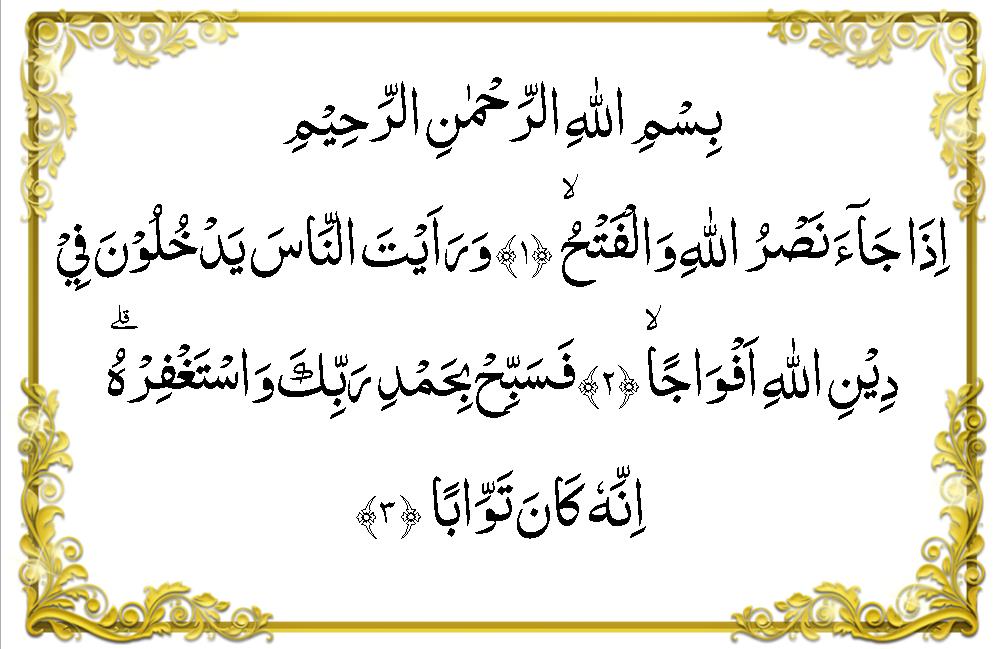 بِسْمِ اللّٰهِ الرَّحْمٰنِ الرَّحِيْمِ
اِذَا جَآءَ نَصْرُ اللّٰهِ وَالْفَتْحُ ۙ ﴿١﴾ وَرَاَيْتَ النَّاسَ يَدْخُلُوْنَ فِيْ
دِيْنِ اللّٰهِ اَفْوَاجًا ۙ ﴿٢﴾ فَسَبِّحْ بِحَمْدِ رَبِّكَ وَاسْتَغْفِرْهُ ۗ
اِنَّهٗ كَانَ تَوَّابًا ﴿٣﴾